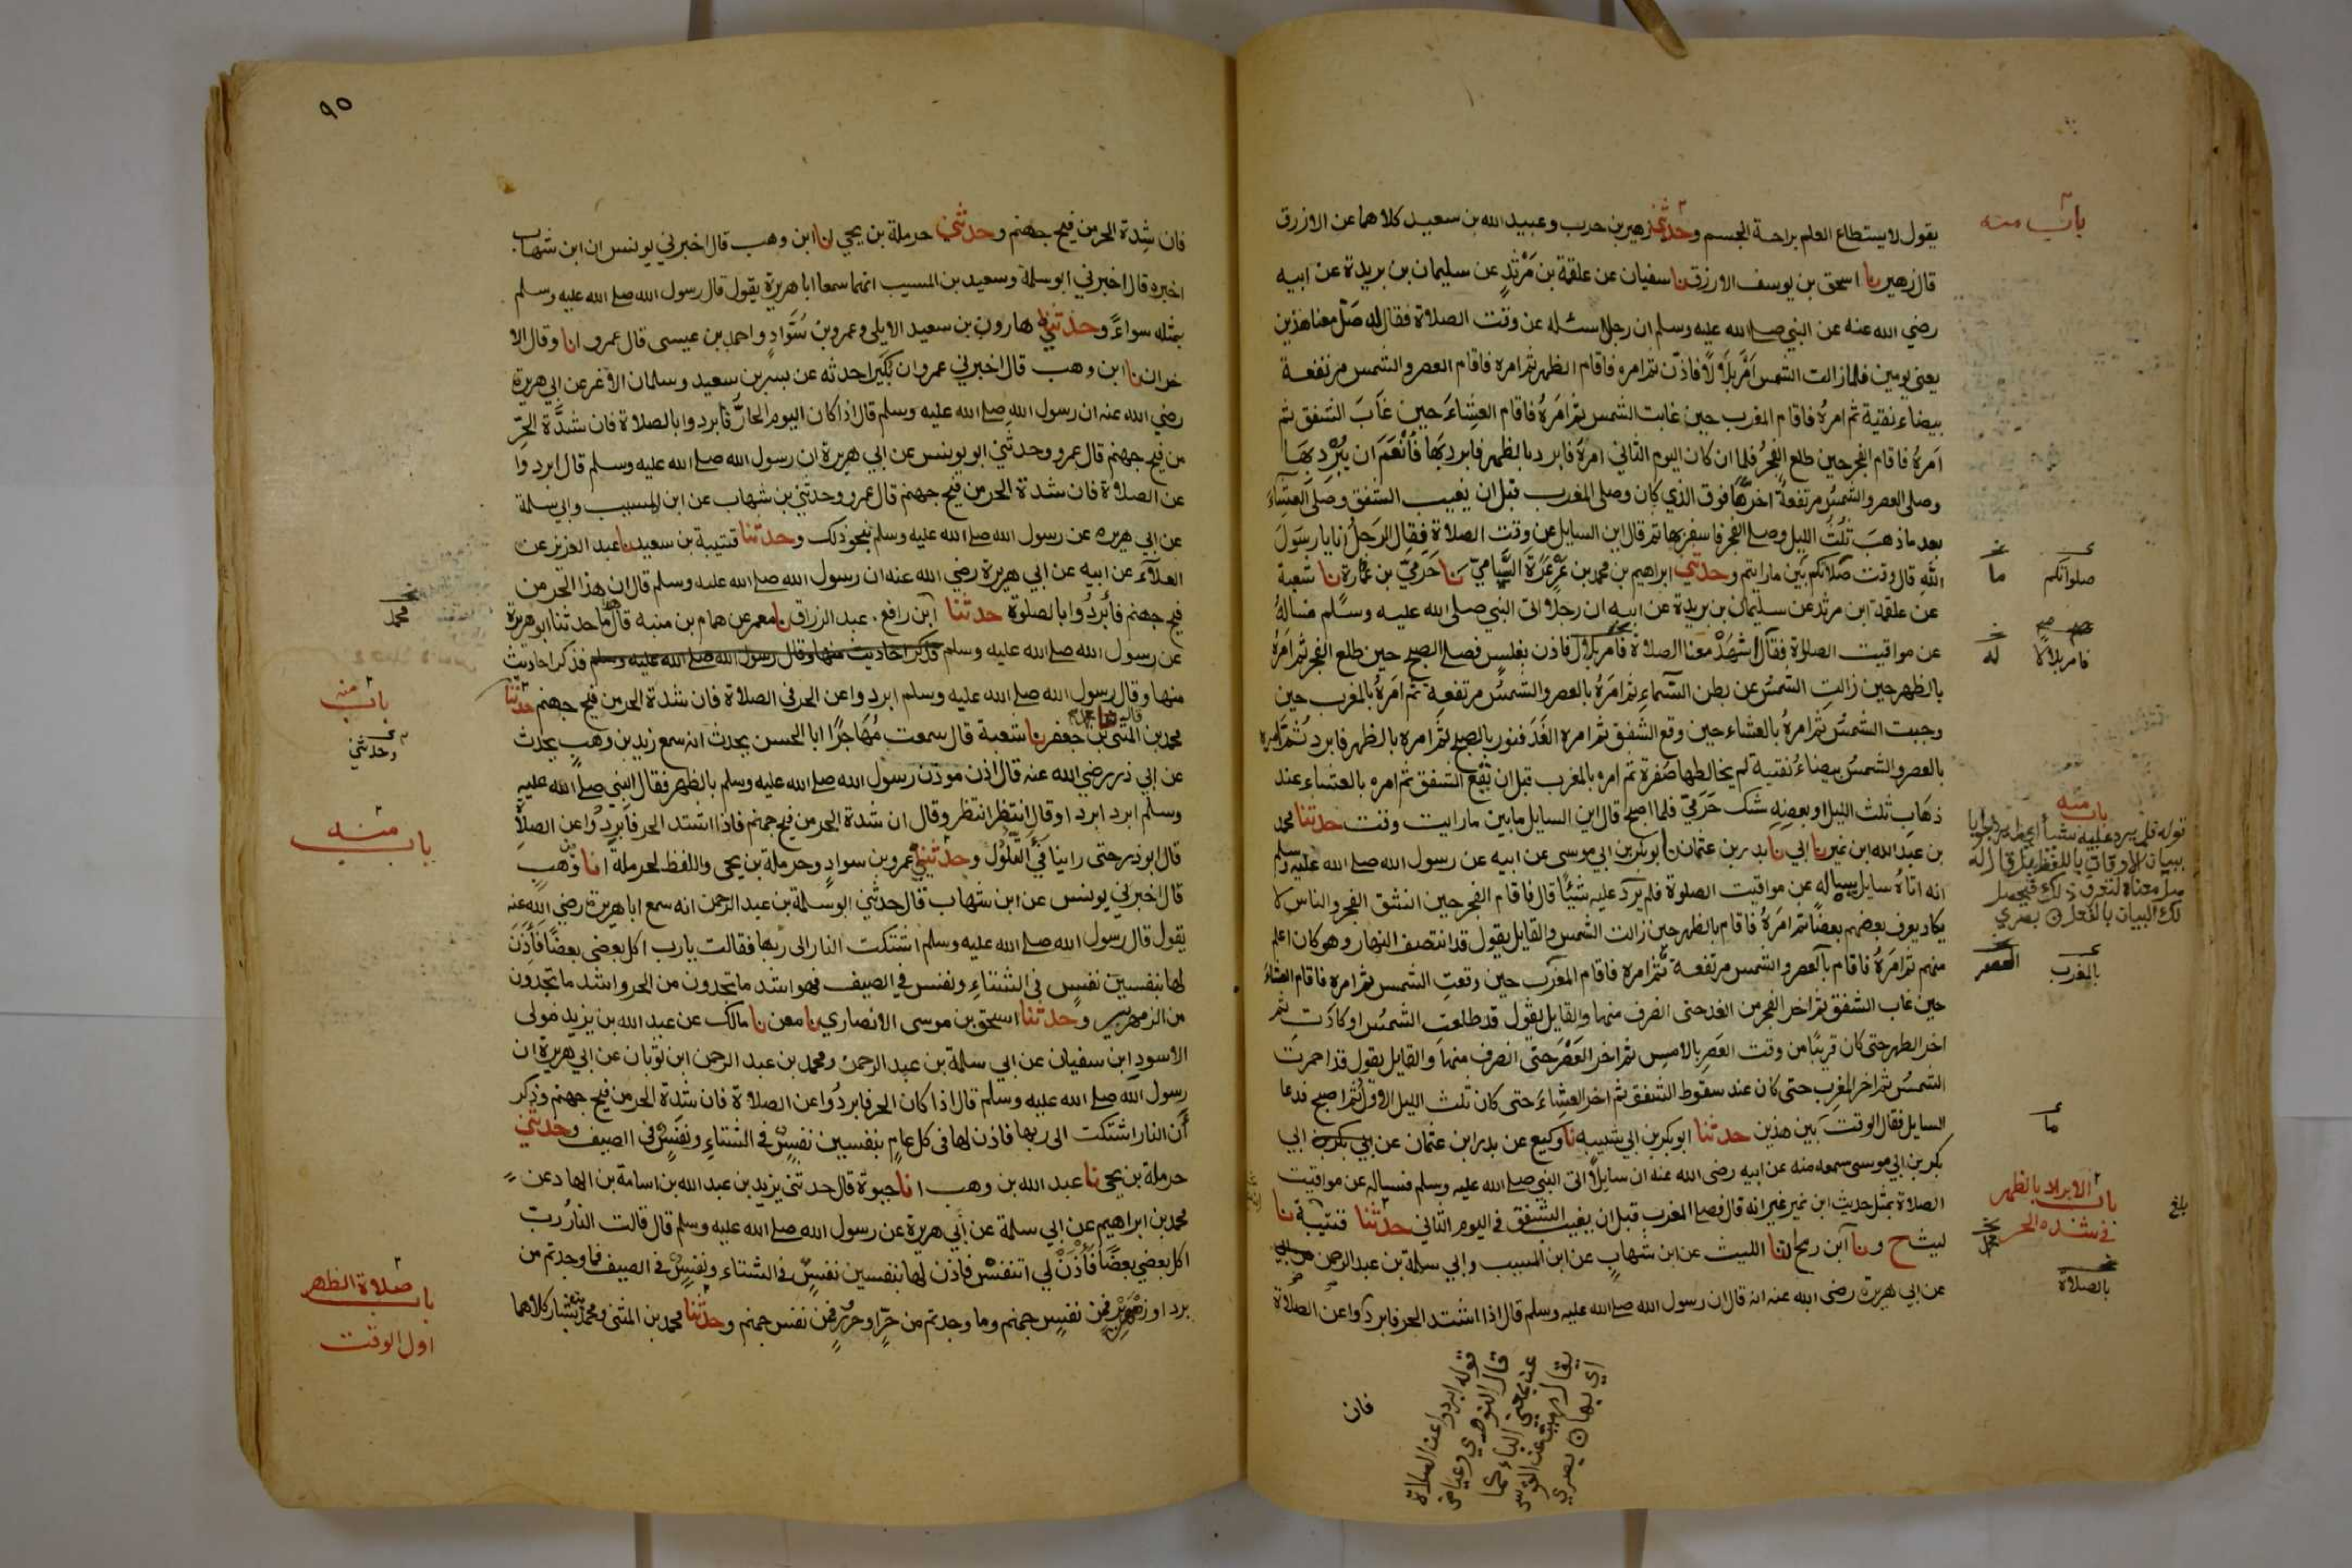 باب منه
يقول لا يستطاع العلم براحة الجسم وحدثني زهير بن حرب وعبيد الله بن سعيد كلاهما عن الازرق
قال زهير نا اسحق بن يوسف الازرق نا سفيان عن علقمة بن مرثد عن سليمان بن بريدة عن ابيه
رضي الله عنه عن النبي صلى الله عليه وسلم ان رجلا سئله عن وقت الصلاة فقال له صل معنا هذين
يعنى يومين فلما زالت الشمس امر بلالا فاذن ثم امره فاقام الظهر ثم امره فاقام العصر والشمس مرتفعة
بيضاء نقية ثم امره فاقام المغرب حين غابت الشمس ثم امره فاقام العشاء حين غاب الشفق ثم
امره فاقام الفجر حين طلع الفجر فلما ان كان اليوم الثاني امره فابرد بالظهر فابرد بها فانعم ان يبرد بها
وصلى العصر والشمس مرتفعة اخرها فوق الذي كان وصلى المغرب قبل ان يغيب الشفق وصلى العشاء
بعد ما ذهب ثلث الليل وصلى الفجر فاسفر بها ثم قال اين السايل عن وقت الصلاة فقال الرجل انا يا رسول
الله قال وقت صلاتكم بين ما رايتم وحدثني ابراهيم بن محمد بن عرعرة السامي نا حرمي بن عمارة نا شعبة
صلواتكم
ما
عن علقمة ابن مرثد عن سليمان بن بريدة عن ابيه ان رجلا اتى النبي صلى الله عليه وسلم فساله
عن مواقيت الصلاة فقال اشهد معنا الصلاة فامر بلال فاذن بغلس فصلى الصبح حين طلع الفجر ثم امره
فامر بلالا
له
بالظهر حين زالت الشمس عن بطن السماء ثم امره بالعصر والشمس مرتفعة ثم امره بالمغرب حين
وجبت الشمس ثم امره بالعشاء حين وقع الشفق ثم امره الغد فنور بالصبح ثم امره بالظهر فابرد ثم امره
بالعصر والشمس بيضاء نقية لم يخالطها صفرة ثم امره بالمغرب قبل ان يقع الشفق ثم امره بالعشاء عند
ذهاب ثلث الليل او بعضه شك حرمي فلما اصبح قال اين السايل ما بين ما رايت وقت حدثنا محمد
باب منه
بن عبد الله ابن نمير نا ابي نا بدر بن عثمان نا ابو بكر بن ابي موسى عن ابيه عن رسول الله صلى الله عليه وسلم
قوله فلم يرد عليه شيئا اي لم يرد جوابا
ببيان الاوقات باللفظ بل قال له
صل معنا لتعرف ذلك فيحصل
لك البيان بالفعل
انه اتاه سايل يساله عن مواقيت الصلوة فلم يرد عليه شيئا قال فاقام الفجر حين انشق الفجر والناس لا
يكاد يعرف بعضهم بعضا ثم امره فاقام بالظهر حين زالت الشمس والقايل يقول قد انتصف النهار وهو كان اعلم
منهم ثم امره فاقام بالعصر والشمس مرتفعة ثم امره فاقام المغرب حين وقعت الشمس ثم امره فاقام العشاء
بالمغرب
العصر
حين غاب الشفق ثم اخر الفجر من الغد حتى انصرف منها والقايل يقول قد طلعت الشمس او كادت ثم
اخر الظهر حتى كان قريبا من وقت العصر بالامس ثم اخر العصر حتى انصرف منها والقايل يقول قد احمرت
الشمس ثم اخر المغرب حتى كان عند سقوط الشفق ثم اخر العشاء حتى كان ثلث الليل الاول ثم اصبح فدعا
السايل فقال الوقت بين هذين حدثنا ابو بكر بن ابي شيبه نا وكيع عن بدر ابن عثمان عن ابي بكر بن ابي
ما
بكر بن ابي موسى سمعه منه عن ابيه رضى الله عنه ان سايلا اتى النبي صلى الله عليه وسلم فساله عن مواقيت
الصلاة بمثل حديث ابن نمير غير انه قال فصلى المغرب قبل ان يغيب الشفق في اليوم الثاني حدثنا قتيبة نا
باب الابراد بالظهر
في شدة الحر
بلغ
ليث ح ونا ابن رمح انا الليث عن ابن شهاب عن ابن المسيب وابي سلمة بن عبد الرحمن
عن ابي هريرة رضى الله عنه انه قال ان رسول الله صلى الله عليه وسلم قال اذا اشتد الحر فابردوا عن الصلاة
بالصلاة
فان
قوله ابردوا عن الصلاة
قال النووي وعياض
عن بمعنى الباء كما
يقال رميت عن القوس
اي بها
٩٥
فان شدة الحر من فيح جهنم وحدثني حرملة بن يحيى انا ابن وهب قال اخبرني يونس ان ابن شهاب
اخبره قال اخبرني ابو سلمة وسعيد بن المسيب انهما سمعا ابا هريرة يقول قال رسول الله صلى الله عليه وسلم
بمثله سواء وحدثني هارون بن سعيد الايلي وعمرو بن سواد واحمد بن عيسى قال عمرو انا وقال الا
خران نا ابن وهب قال اخبرني عمرو ان بكيرا حدثه عن بسر بن سعيد وسلمان الاغر عن ابي هريرة
رضي الله عنه ان رسول الله صلى الله عليه وسلم قال اذا كان اليوم الحار فابردوا بالصلاة فان شدة الحر
من فيح جهنم قال عمرو وحدثني ابو يونس عن ابي هريرة ان رسول الله صلى الله عليه وسلم قال ابردوا
عن الصلاة فان شدة الحر من فيح جهنم قال عمرو وحدثني بن شهاب عن ابن المسيب وابي سلمة
عن ابي هريره عن رسول الله صلى الله عليه وسلم بنحو ذلك وحدثنا قتيبة بن سعيد نا عبد العزيز عن
العلاء عن ابيه عن ابي هريرة رضي الله عنه ان رسول الله صلى الله عليه وسلم قال ان هذا الحر من
فيح جهنم فابردوا بالصلوة حدثنا ابن رافع عبد الرزاق نا معمر عن همام بن منبه قال هذا ما حدثنا ابو هريرة
محمد
عن رسول الله صلى الله عليه وسلم فذكر احاديث منها وقال رسول الله صلى الله عليه وسلم فذكر احاديث
منها وقال رسول الله صلى الله عليه وسلم ابردوا عن الحر في الصلاة فان شدة الحر من فيح جهنم حدثنا
باب منه
محمد بن المثنى بن جعفر نا شعبة قال سمعت مهاجرا ابا الحسن يحدث انه سمع زيد بن وهب يحدث
وحدثني
عن ابي ذر رضي الله عنه قال اذن موذن رسول الله صلى الله عليه وسلم بالظهر فقال النبي صلى الله عليه
وسلم ابرد ابرد او قال انتظر انتظر وقال ان شدة الحر من فيح جهنم فاذا اشتد الحر فابردوا عن الصلاة
باب منه
قال ابو ذر حتى راينا فئ التلول وحدثني عمرو بن سواد وحرملة بن يحيى واللفظ لحرملة انا بن وهب
قال اخبرني يونس عن ابن شهاب قال حدثني ابو سلمة بن عبد الرحمن انه سمع ابا هريرة رضي الله عنه
يقول قال رسول الله صلى الله عليه وسلم اشتكت النار الى ربها فقالت يا رب اكل بعضى بعضا فاذن
لها بنفسين نفس في الشتاء ونفس في الصيف فهو اشد ما تجدون من الحر واشد ما تجدون
من الزمهرير وحدثنا اسحق بن موسى الانصاري نا معن نا مالك عن عبد الله بن يزيد مولى
الاسود ابن سفيان عن ابي سلمة بن عبد الرحمن ومحمد بن عبد الرحمن ابن ثوبان عن ابي هريرة ان
رسول الله صلى الله عليه وسلم قال اذا كان الحر فابردوا عن الصلاة فان شدة الحر من فيح جهنم وذكر
ان النار اشتكت الى ربها فاذن لها في كل عام بنفسين نفس في الشتاء ونفس في الصيف وحدثني
حرملة بن يحيى نا عبد الله بن وهب انا حيوة قال حدثني يزيد بن عبد الله بن اسامة بن الهاد عن
محمد بن ابراهيم عن ابي سلمة عن ابي هريرة عن رسول الله صلى الله عليه وسلم قال قالت النار رب
اكل بعضي بعضا فاذن لي اتنفس فاذن لها بنفسين نفس في الشتاء ونفس في الصيف فما وجدتم من
برد او زمهرير فمن نفس جهنم وما وجدتم من حر او حرور فمن نفس جهنم وحدثنا محمد بن المثنى ومحمد بن بشار كلاهما
باب صلاة الظهر
اول الوقت